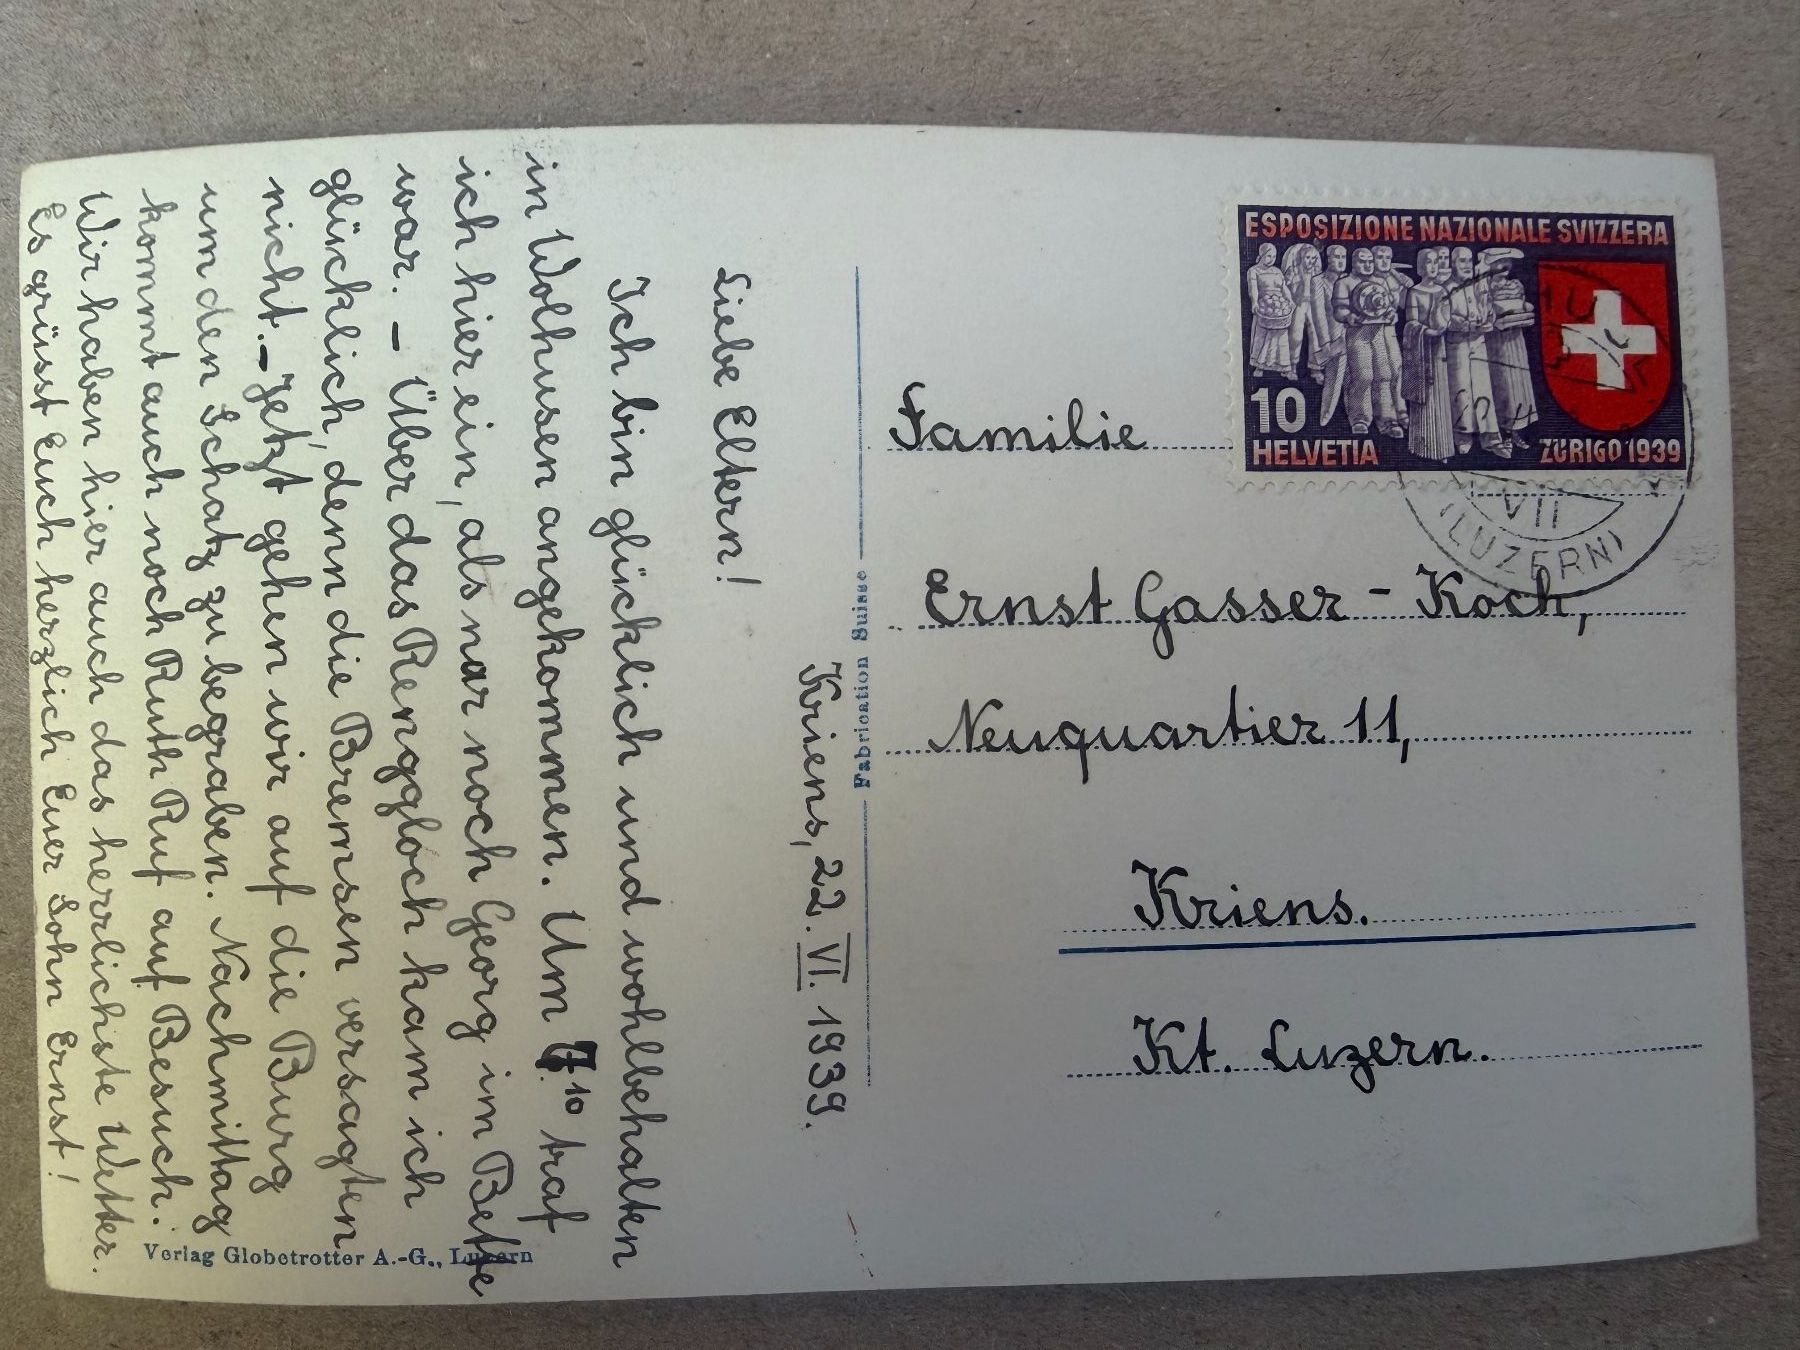 Kriens, 22. VI. 1939.
Liebe Eltern!
Ich bin glücklich und wohlbehalten
in Wolhusen angekommen. Um 7¹⁰ traf
ich hier ein, als nar noch Georg im Bette
war. – Über das Renggloch kam ich
glücklich, denn die Bremsen versagten
nicht. – Jetzt gehen wir auf die Burg
um den Schatz zu begraben. Nachmittag
kommt auch noch Ruth Ruf auf Besuch.
Wir haben hier auch das herrlichste Wetter.
Es grüsst Euch herzlich Euer Sohn Ernst!
Verlag Globetrotter A.-G., Luzern
Fabrication Suisse
ESPOSIZIONE NAZIONALE SVIZZERA
10
HELVETIA
ZURIGO 1939
VII
(LUZERN)
Familie
Ernst Gasser - Koch,
Neuquartier 11,
Kriens.
Kt. Luzern.